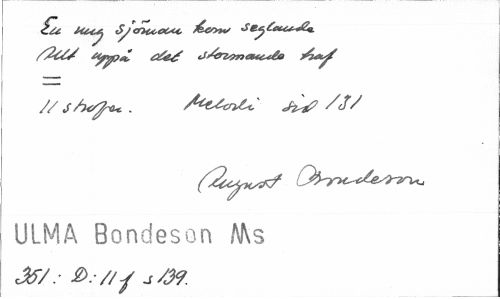 En ung sjöman kom seglande
Allt uppå det stormande haf
=
11 strofer. Melodi sid 131
August Bondeson
ULMA Bondeson Ms
351: D: 11 f s 139.